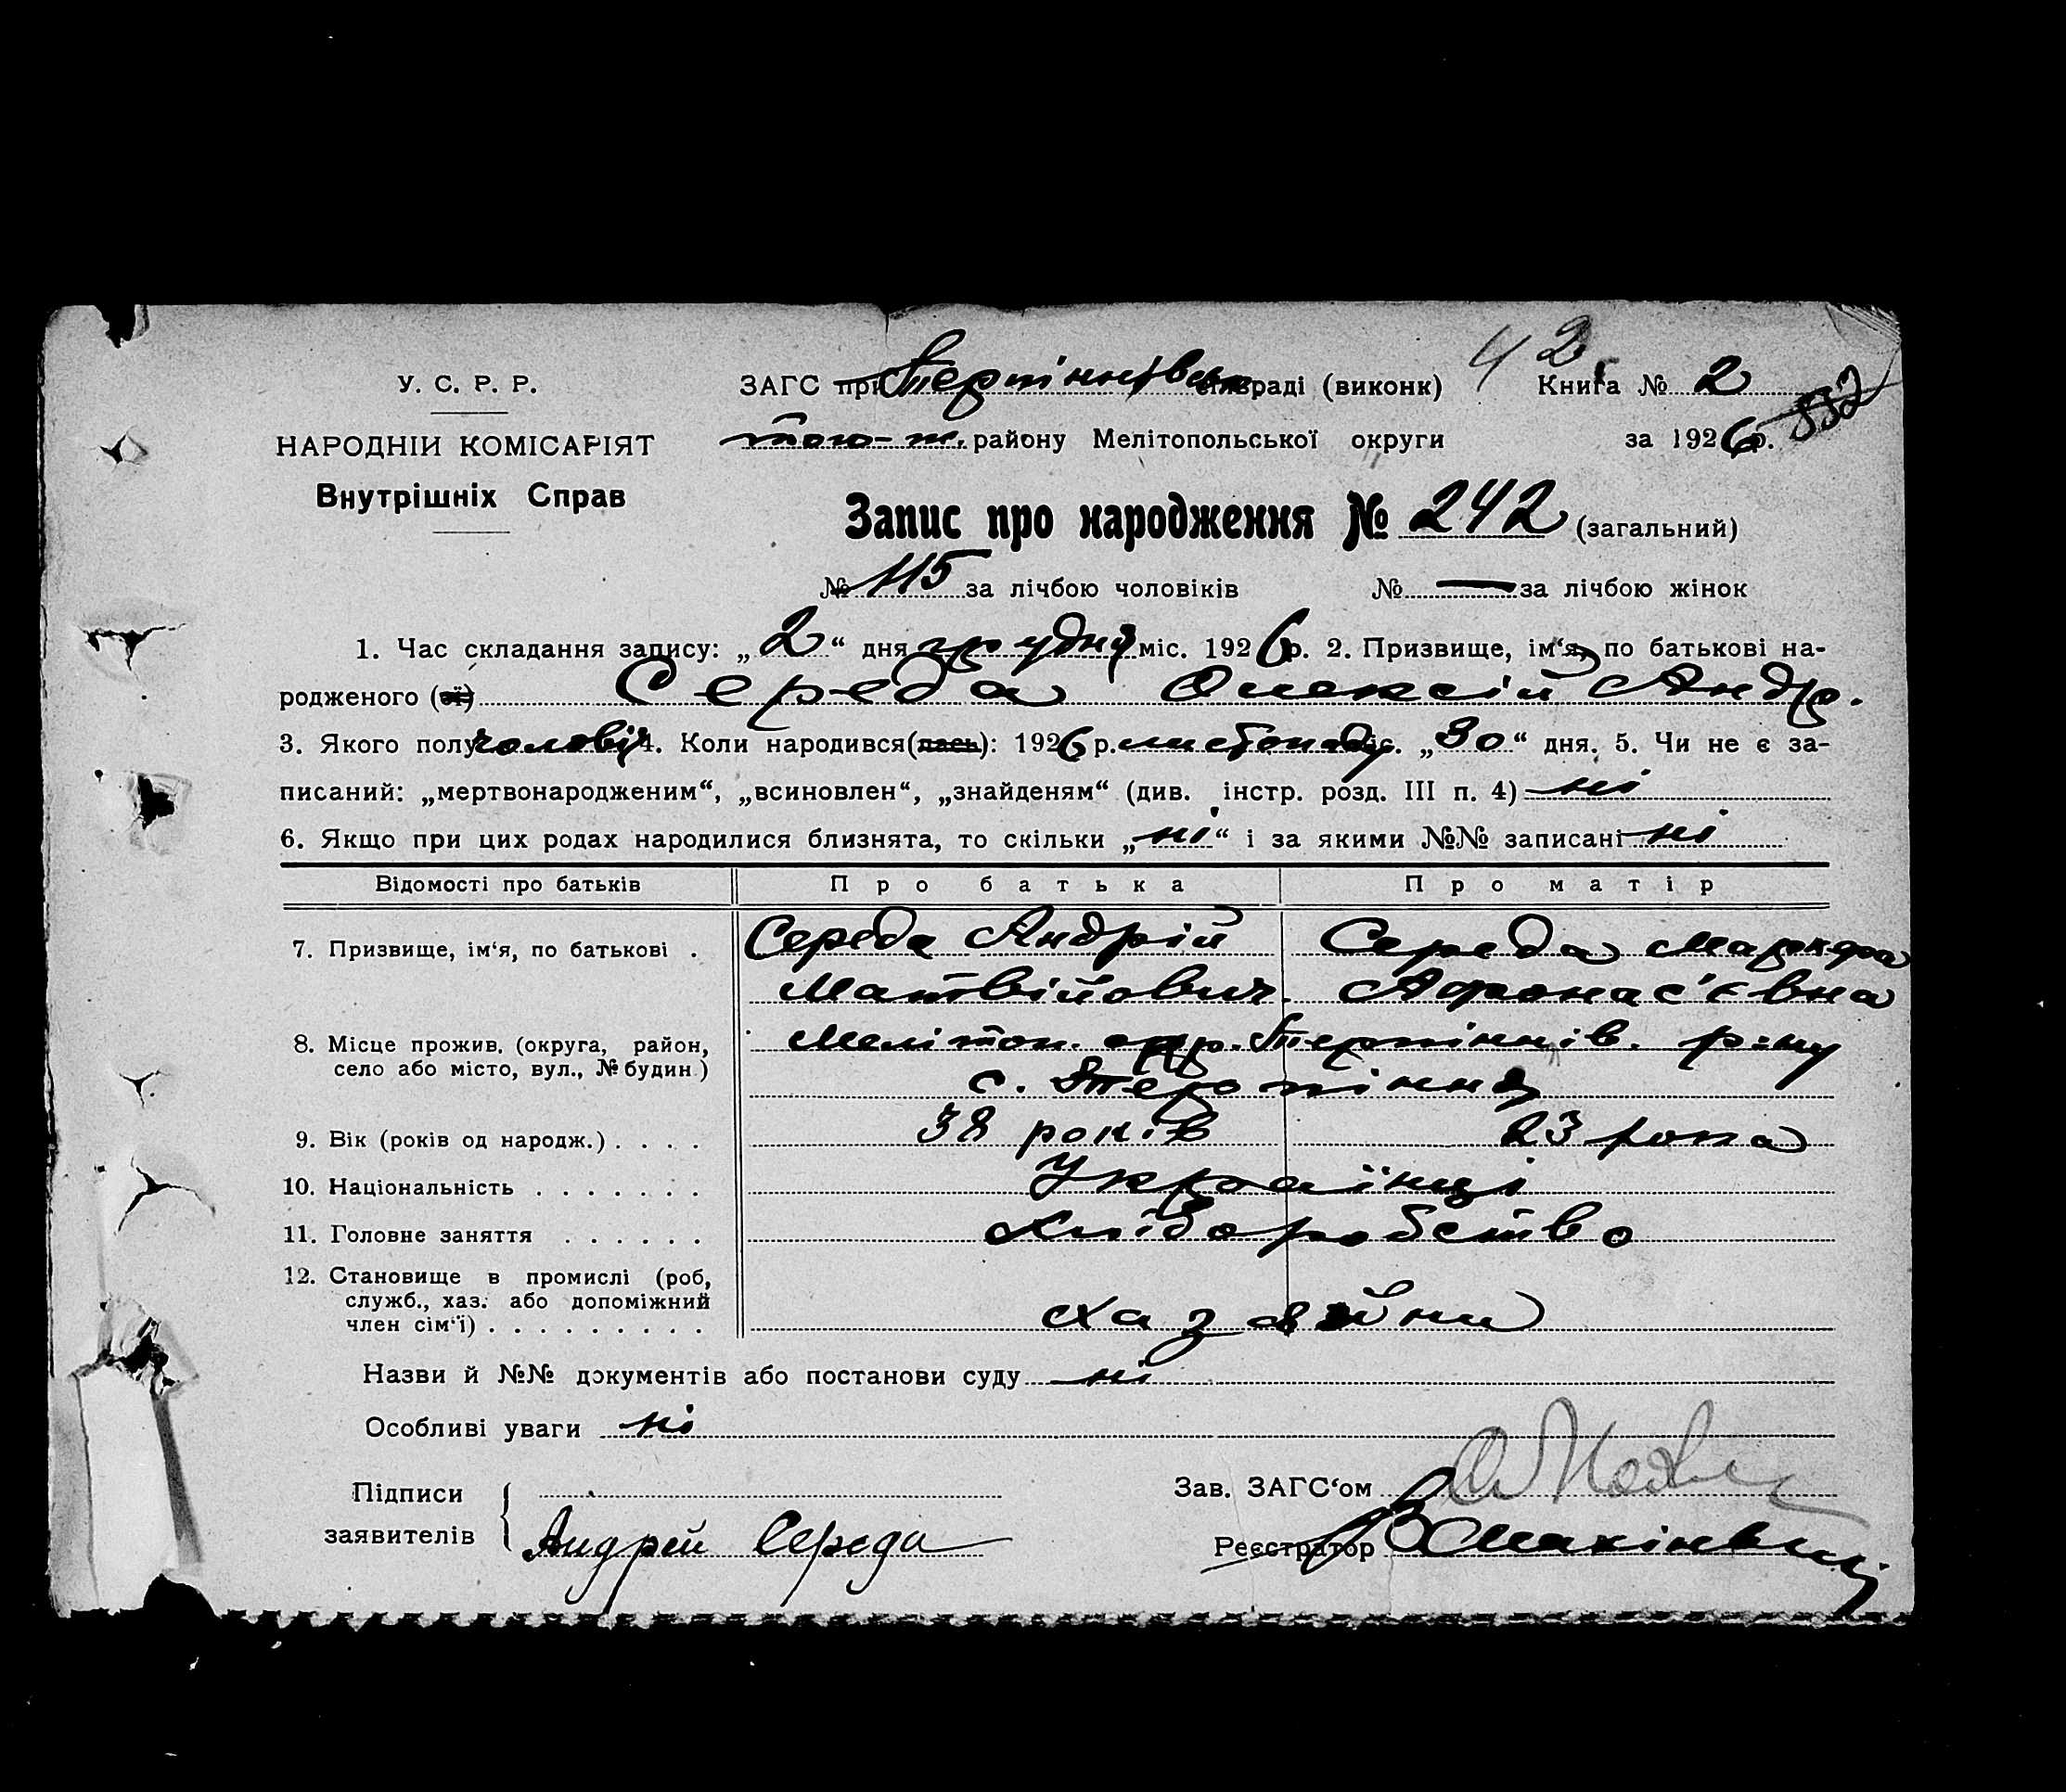 42
У. С. Р. Р.
НАРОДНІЙ КОМІСАРІЯТ
Внутрішніх Справ
ЗАГС при Терпіннівськ сільраді (виконк) Книга № 2
того-ж. району Мелітопольської округи за 1926 р. 552
Запис про народження № 242 (загальний)
№ 115 за лічбою чоловіків № — за лічбою жінок
1. Час складання запису: „ 2 “ дня грудня міс. 1926 р. 2. Призвище, ім‘я, по батькові на-
родженого (ої) Середа Олексій Андр.
3. Якого полу чоловіч 4. Коли народився (лась): 1926 р. листопаду міс. „ 30 “ дня. 5. Чи не є за-
писаний: „мертвонародженим“, „всиновлен“, „знайденям“ (див. інстр. розд. III п. 4) ні
6. Якщо при цих родах народилися близнята, то скільки „ ні “ і за якими №№ записані ні
Відомості про батьків Про батька Про матір
7. Призвище, ім‘я, по батькові . Середа Андрій Середа
Матвійович. Афонас'євна
8. Місце прожив. (округа, район, Мелітоп. окр. Терпіннів. р-ну
село або місто, вул., № будин.) с. Терпіння
9. Вік (років од народж.) . . . . 38 років 23 рока
10. Національність . . . . . . . Українці
11. Головне заняття . . . . . . Хліборобство
12. Становище в промислі (роб,
служб., хаз. або допоміжний
член сім‘ї) . . . . . . . . . хазяйни
Назви й №№ документів або постанови суду ні
Особливі уваги ні
Підписи
заявителів Андрей Середа
Зав. ЗАГС‘ом
Реєстратор